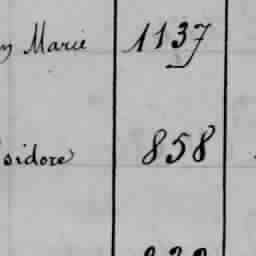 Marie 1137
Isidore 858